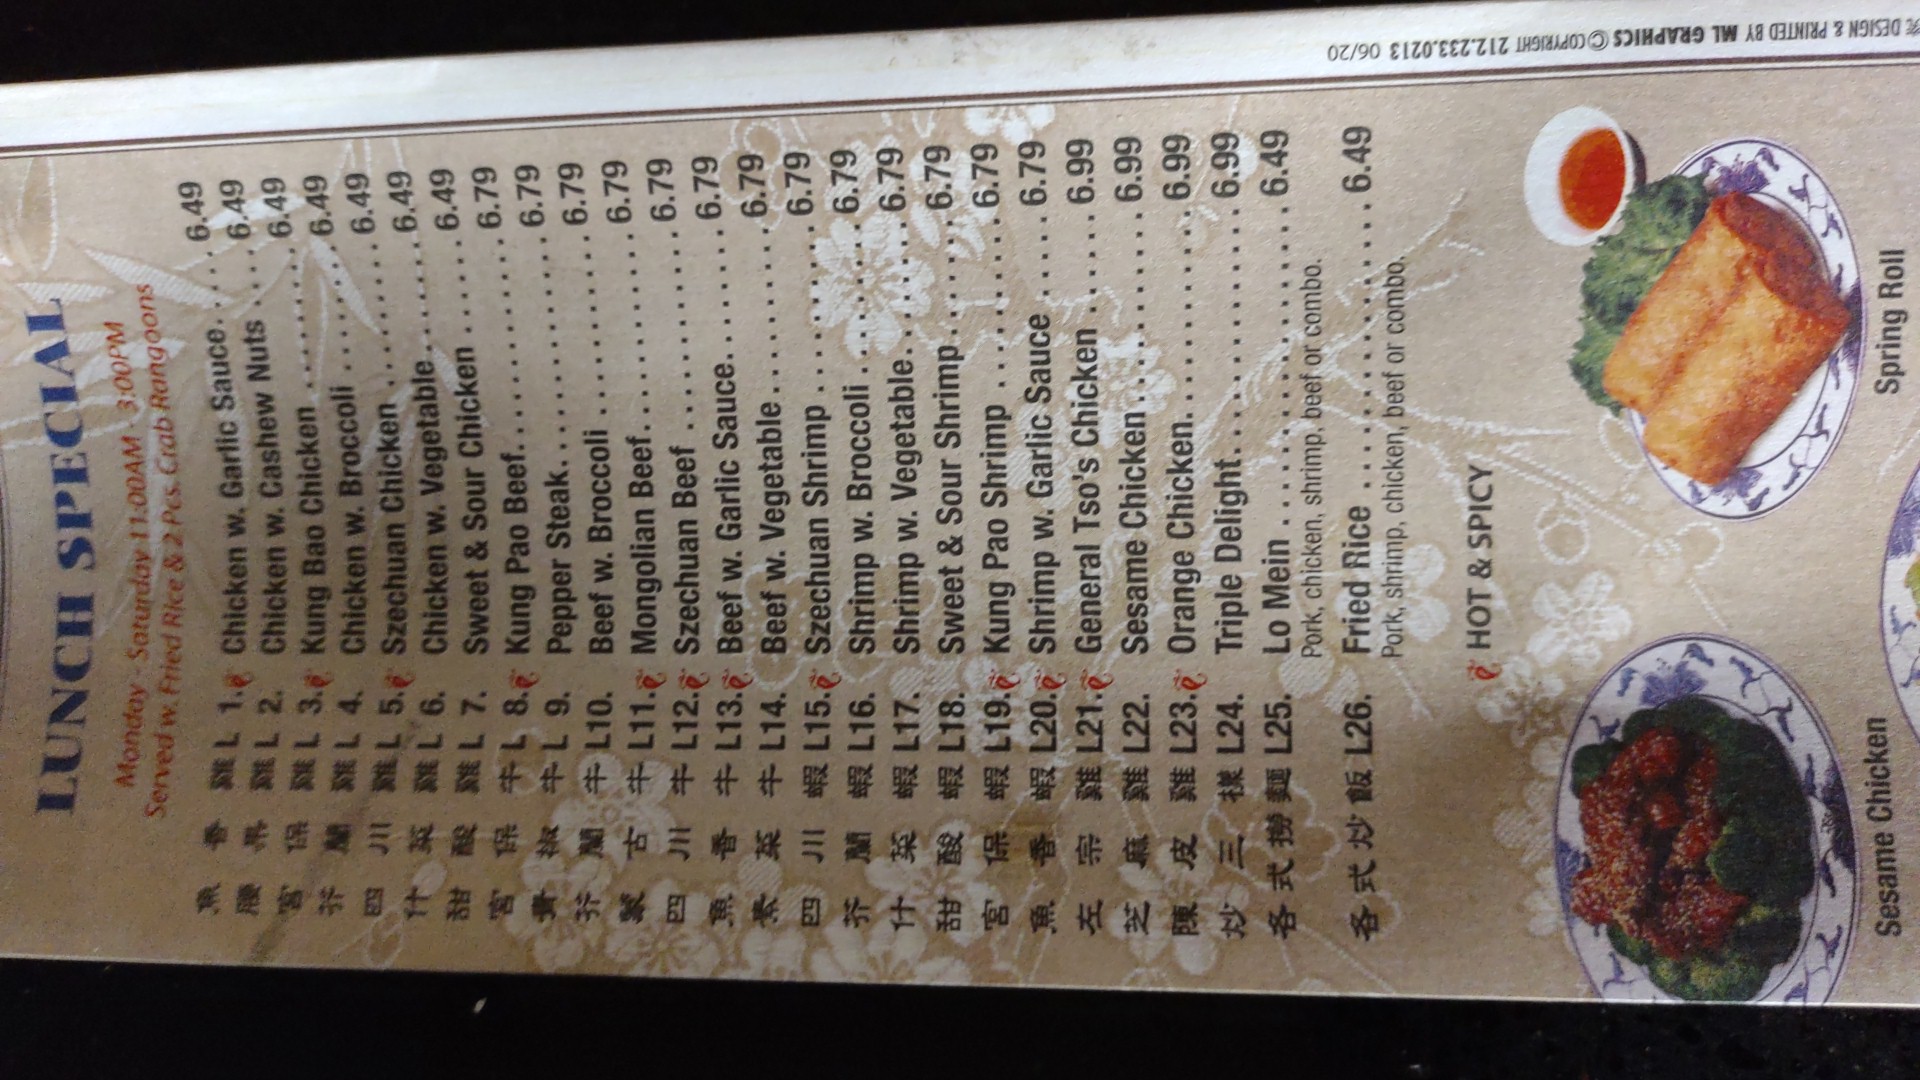 LUNCH SPECIAL
Monday - Saturday 11:00AM - 3:00PM
Served w. Fried Rice & 2 Pcs. Crab Rangoons
魚 香 雞 L 1. Chicken w. Garlic Sauce.... 6.49
腰 果 雞 L 2. Chicken w. Cashew Nuts .... 6.49
宮 保 雞 L 3. Kung Bao Chicken ........... 6.49
芥 蘭 雞 L 4. Chicken w. Broccoli .......... 6.49
四 川 雞 L 5. Szechuan Chicken ........... 6.49
什 菜 雞 L 6. Chicken w. Vegetable........ 6.49
甜 酸 雞 L 7. Sweet & Sour Chicken ....... 6.49
宮 保 牛 L 8. Kung Pao Beef................ 6.79
椒 牛 L 9. Pepper Steak................. 6.79
芥 蘭 牛 L10. Beef w. Broccoli ............. 6.79
蒙 古 牛 L11. Mongolian Beef.............. 6.79
四 川 牛 L12. Szechuan Beef .............. 6.79
魚 香 牛 L13. Beef w. Garlic Sauce........ 6.79
素 菜 牛 L14. Beef w. Vegetable........... 6.79
四 川 蝦 L15. Szechuan Shrimp ........... 6.79
芥 蘭 蝦 L16. Shrimp w. Broccoli .......... 6.79
什 菜 蝦 L17. Shrimp w. Vegetable........ 6.79
甜 酸 蝦 L18. Sweet & Sour Shrimp........ 6.79
宮 保 蝦 L19. Kung Pao Shrimp ........... 6.79
魚 香 蝦 L20. Shrimp w. Garlic Sauce .... 6.79
左 宗 雞 L21. General Tso's Chicken ...... 6.99
芝 麻 雞 L22. Sesame Chicken............ 6.99
陳 皮 雞 L23. Orange Chicken............. 6.99
炒 三 樣 L24. Triple Delight................ 6.99
各 式 撈 麵 L25. Lo Mein ..................... 6.49
Pork, chicken, shrimp, beef or combo.
各 式 炒 飯 L26. Fried Rice .................. 6.49
Pork, shrimp, chicken, beef or combo.
HOT & SPICY
Sesame Chicken
Spring Roll
DESIGN & PRINTED BY ML GRAPHICS © COPYRIGHT 212.233.0213 06/20